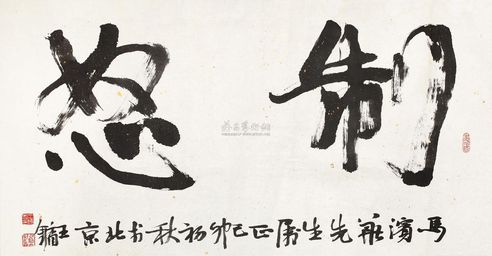 制怒
馬濱龍先生屬正己卯初秋於北京王鏞